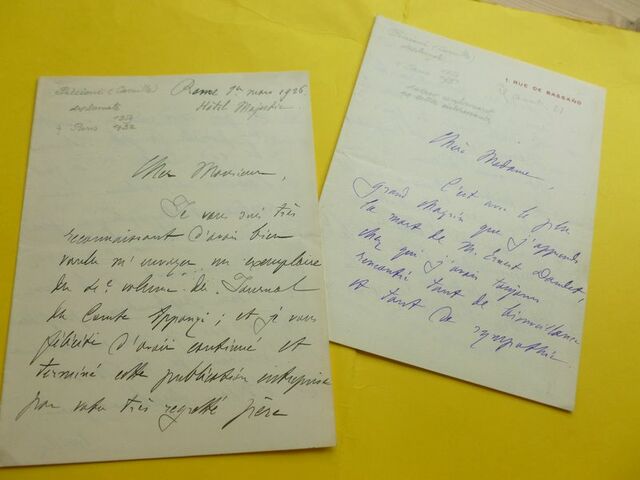 Barrère (Camille)
diplomate
† Paris
Rome 1er mars 1926
Hôtel Majestic
Cher Monsieur,
Je vous suis très
reconnaissant d'avoir bien
voulu m'envoyer un exemplaire
du 4e volume du Journal
du Comte Apponyi ; et je vous
félicite d'avoir continué et
terminé cette publication entreprise
par votre très regretté père
1, RUE DE BASSANO
Chère Madame,
C'est avec le plus
grand regret que j'apprends
la mort de M. Ernest Daudet,
chez qui j'avais toujours
rencontré tant de bienveillance
et tant de sympathie.